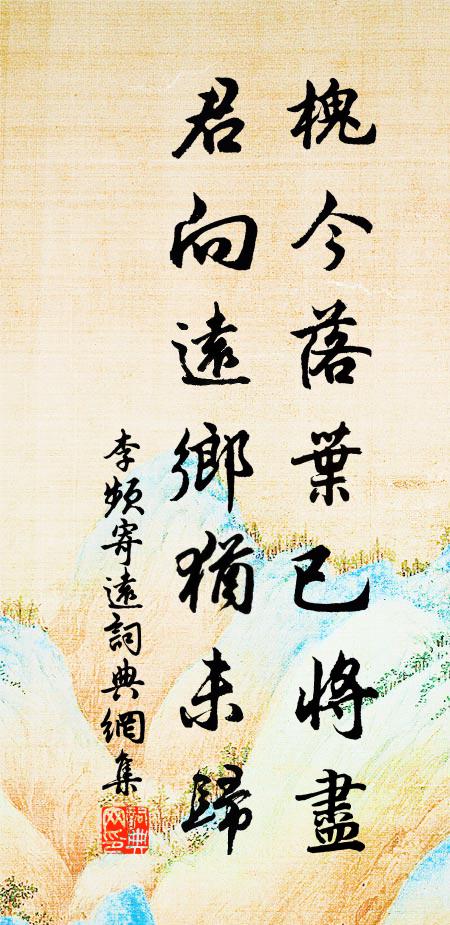 槐今落葉已將盡
君向遠鄉猶未歸
李頻寄遠詞典網集
詞典網印